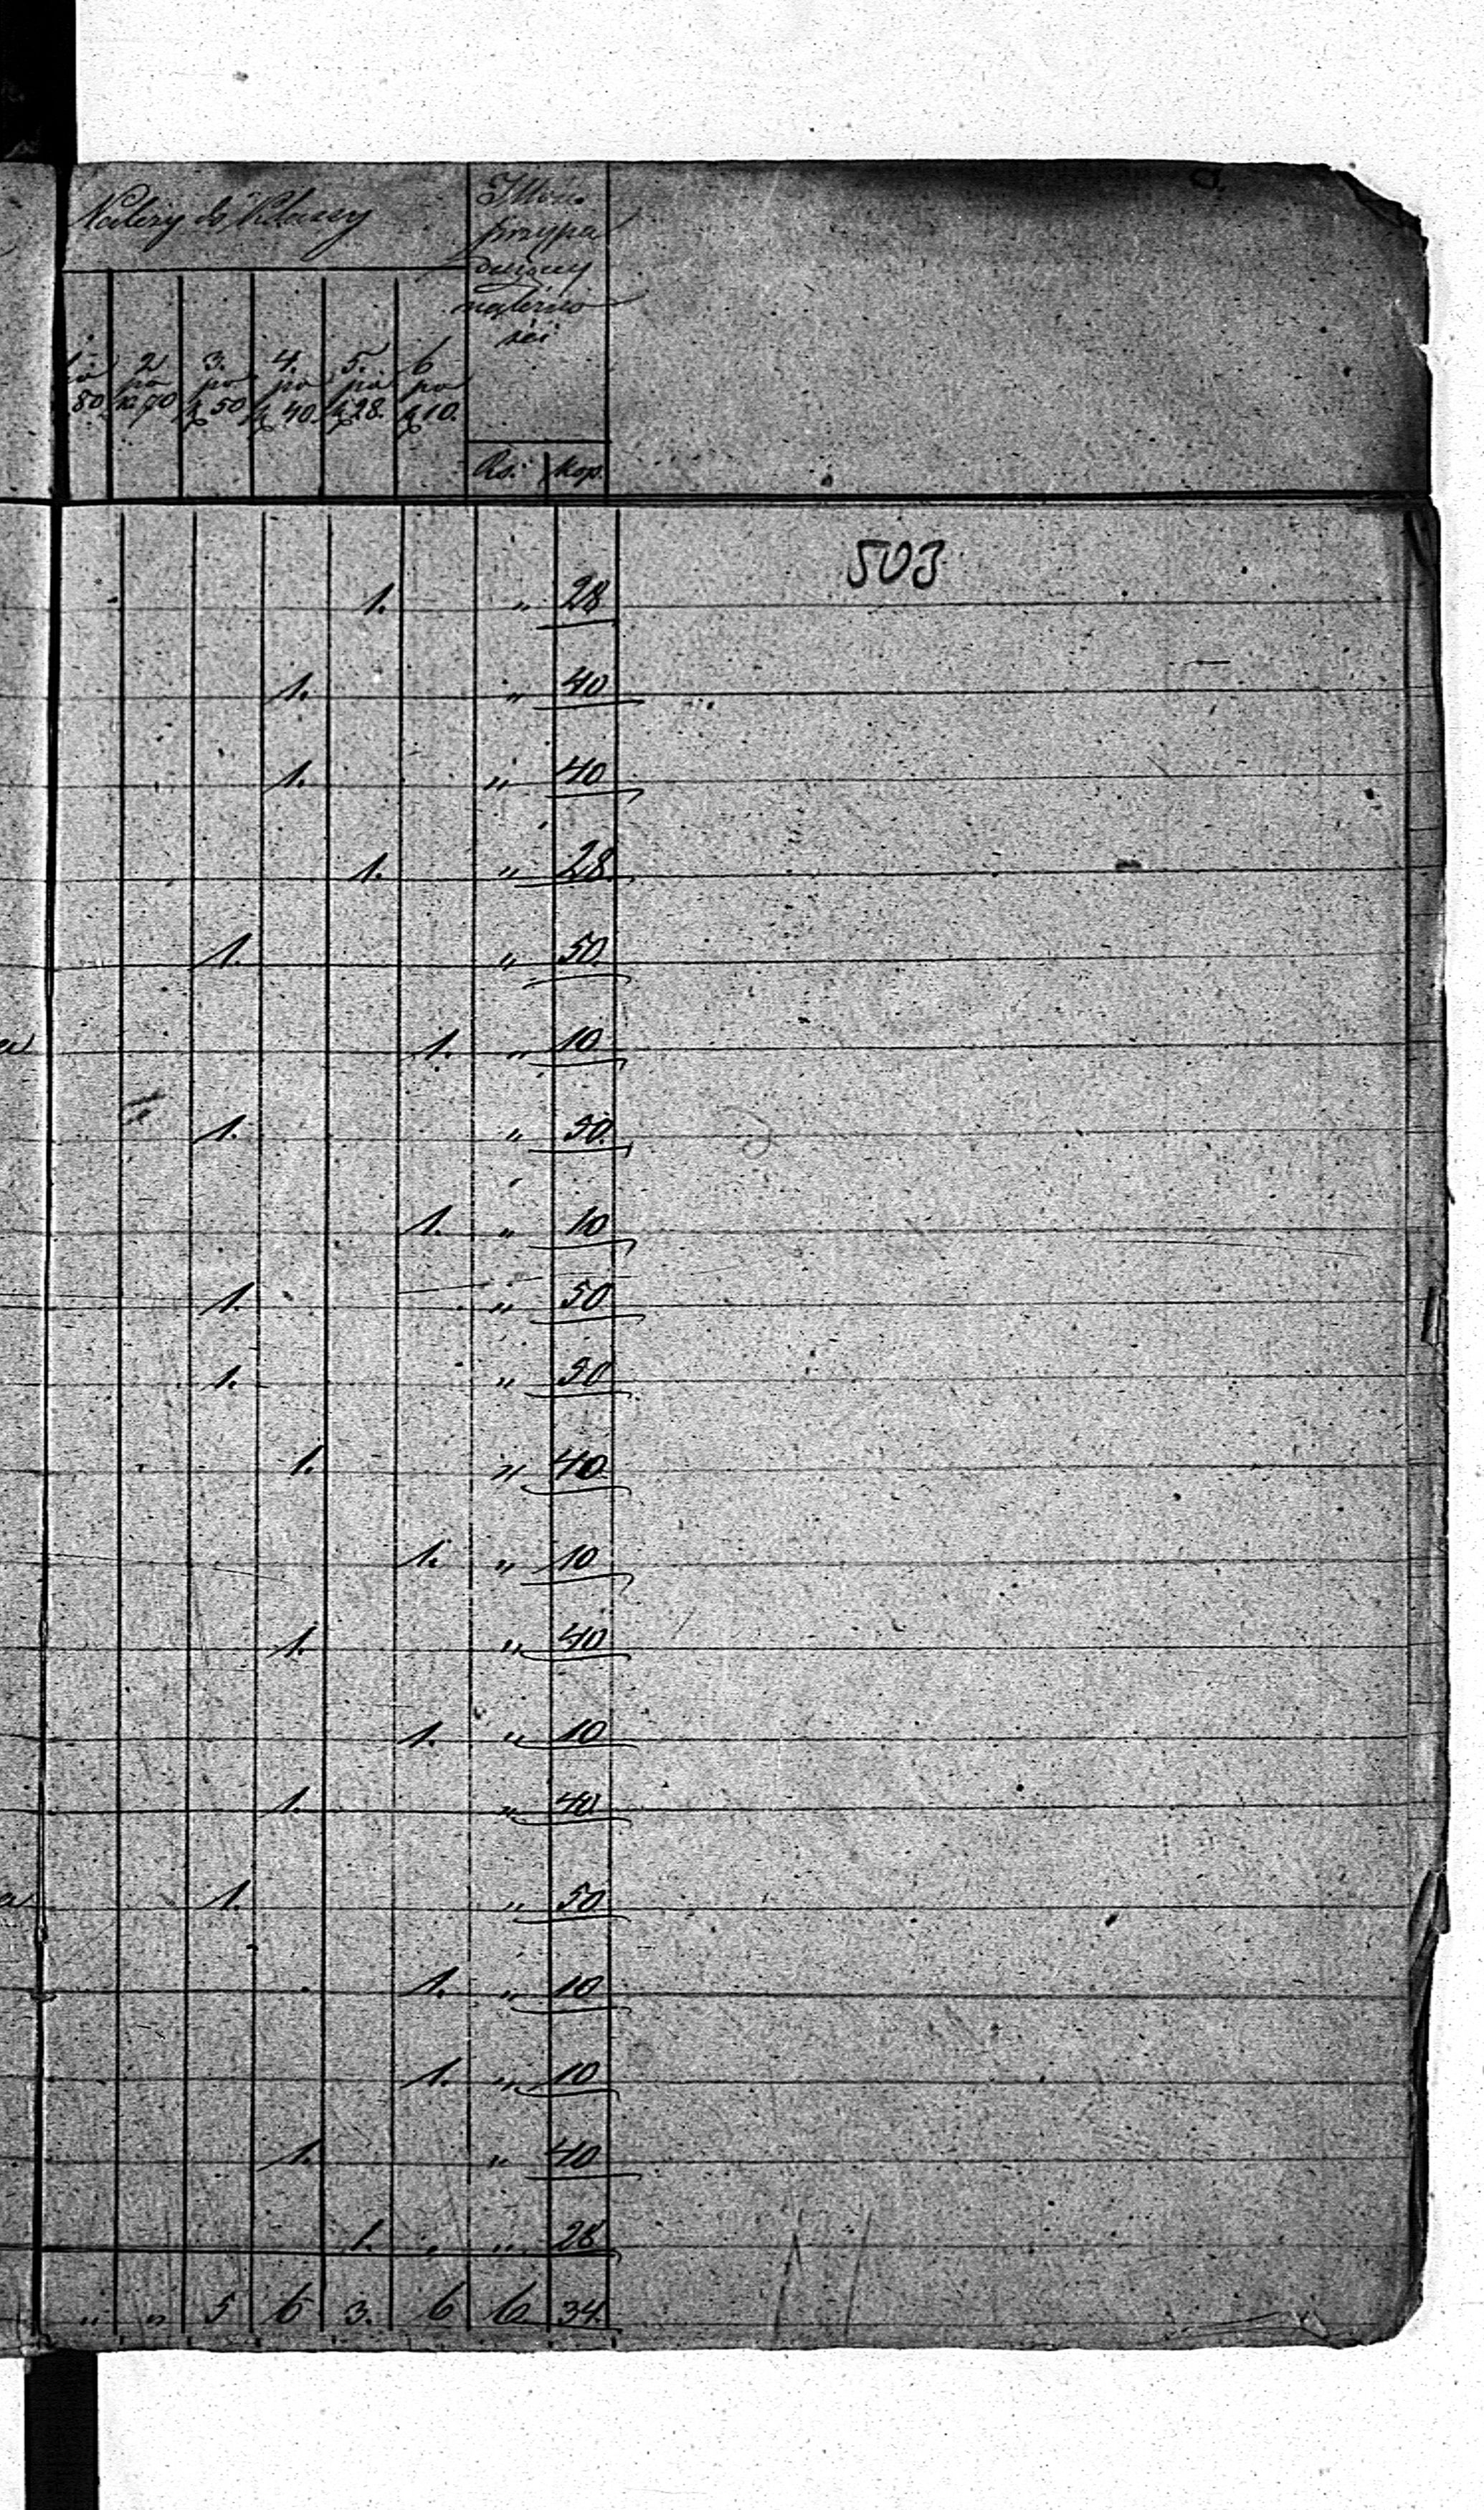 Należy do Klassy
przypa
dający
należno
ści
2 3. 4. 5. 6
po po po po po po
80. k 70 k 50 k 40. k 28. k 10.
Rs. kop.
503
1. " 28
1. " 40
1. " 40
1. " 28
1. " 50
1. " 10
1. " 50
1. " 10
1. " 50
1. " 50
1. " 40
1. " 10
1. " 40
1. " 10
1. " 40
1. " 50
1. " 10
1. " 10
1. " 40
1. " 28
" " 5 6 3. 6 6 34